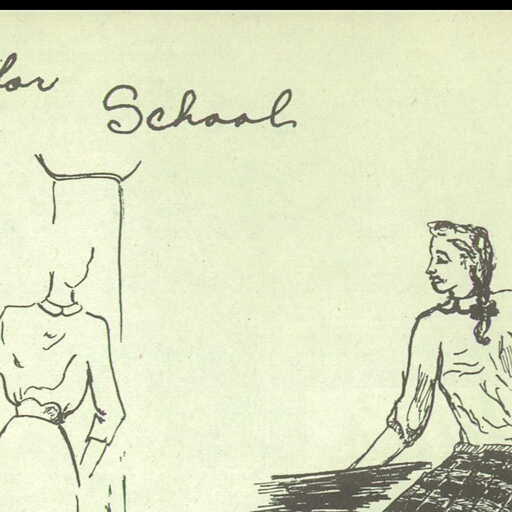 for
School